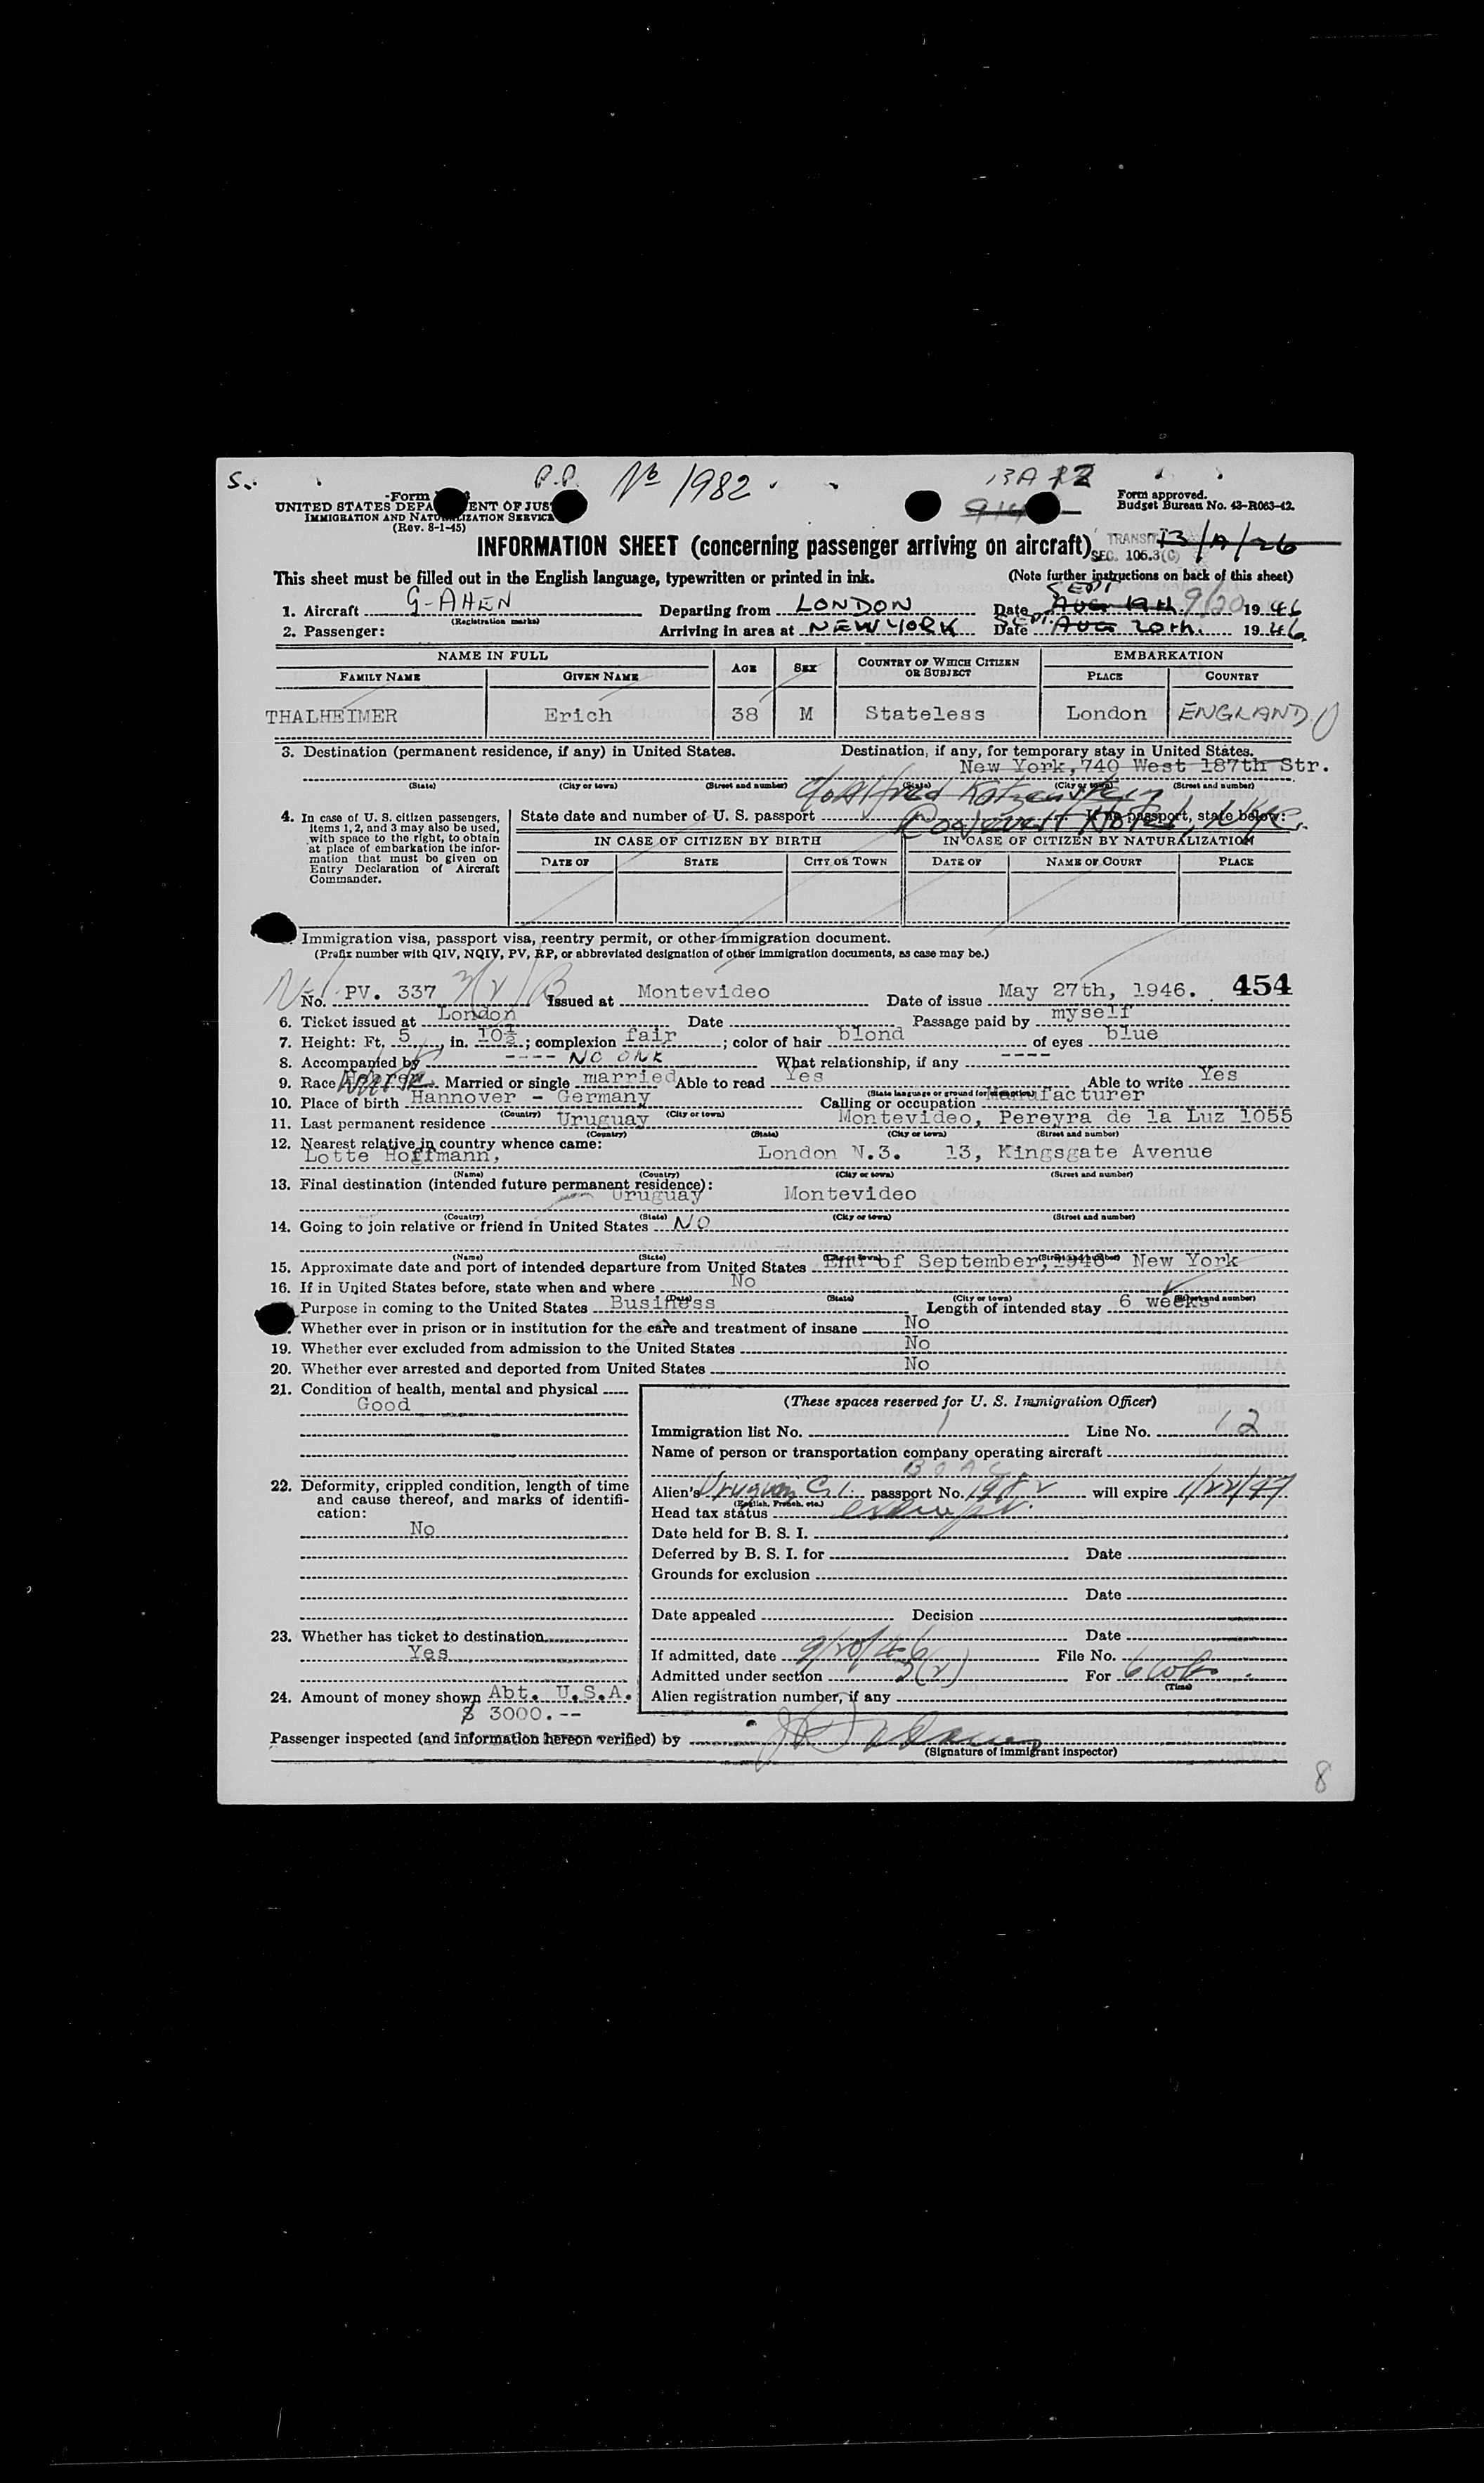 S.
P.P. No 1982
13A 12
Form
UNITED STATES DEPA ENT OF JUS
IMMIGRATION AND NATURALIZATION SERVICE
(Rev. 8-1-45)
Form approved.
Budget Bureau No. 43-R063-42.
INFORMATION SHEET (concerning passenger arriving on aircraft)
TRANSIT
SEC. 105.3(C)
13/A/26
This sheet must be filled out in the English language, typewritten or printed in ink.
(Note further instructions on back of this sheet)
1. Aircraft G-AHEN Departing from LONDON Date SEPT AUG 19th 9/20 1946
(Registration marks)
2. Passenger: Arriving in area at NEW YORK Date SEPT. AUG 20th. 1946
NAME IN FULL AGE SEX COUNTRY OF WHICH CITIZEN OR SUBJECT EMBARKATION
FAMILY NAME GIVEN NAME PLACE COUNTRY
THALHEIMER Erich 38 M Stateless London ENGLAND
3. Destination (permanent residence, if any) in United States. Destination, if any, for temporary stay in United States.
New York, 740 West 187th Str.
(State) (City or town) (Street and number) (State) (City or town) (Street and number)
c/o Alfred Katzenstein
4. In case of U. S. citizen passengers, items 1, 2, and 3 may also be used, with space to the right, to obtain at place of embarkation the information that must be given on Entry Declaration of Aircraft Commander.
State date and number of U. S. passport If no passport, state below:
Hotel, NYC.
IN CASE OF CITIZEN BY BIRTH IN CASE OF CITIZEN BY NATURALIZATION
DATE OF STATE CITY OR TOWN DATE OF NAME OF COURT PLACE
Immigration visa, passport visa, reentry permit, or other immigration document.
(Prefix number with QIV, NQIV, PV, RP, or abbreviated designation of other immigration documents, as case may be.)
No. PV. 337 3(2) B Issued at Montevideo Date of issue May 27th, 1946. 454
6. Ticket issued at London Date Passage paid by myself
7. Height: Ft. 5, in. 10½; complexion fair; color of hair blond of eyes blue
8. Accompanied by ---- NO ONE What relationship, if any ----
9. Race Hebrew Married or single married Able to read Yes Able to write Yes
(State language or ground for exemption)
10. Place of birth Hannover - Germany Calling or occupation Manufacturer
(Country) (City or town)
11. Last permanent residence Uruguay Montevideo, Pereyra de la Luz 1055
(Country) (State) (City or town) (Street and number)
12. Nearest relative in country whence came:
Lotte Hoffmann, London N.3. 13, Kingsgate Avenue
(Name) (Country) (City or town) (Street and number)
13. Final destination (intended future permanent residence):
Uruguay Montevideo
(Country) (State) (City or town) (Street and number)
14. Going to join relative or friend in United States NO
(Name) (State) (City or town) (Street and number)
15. Approximate date and port of intended departure from United States End of September, 1946 New York
16. If in United States before, state when and where No
(Date) (State) (City or town) (Street and number)
Purpose in coming to the United States Business Length of intended stay 6 weeks
Whether ever in prison or in institution for the care and treatment of insane No
19. Whether ever excluded from admission to the United States No
20. Whether ever arrested and deported from United States No
21. Condition of health, mental and physical
Good
22. Deformity, crippled condition, length of time and cause thereof, and marks of identification:
No
23. Whether has ticket to destination
Yes
24. Amount of money shown Abt. U.S.A.
$ 3000.--
(These spaces reserved for U. S. Immigration Officer)
Immigration list No. 1 Line No. 12
Name of person or transportation company operating aircraft
BOAC
Alien's Uruguay C.I. passport No. 1982 will expire 1/22/47
(English, French, etc.)
Head tax status exempt
Date held for B. S. I.
Deferred by B. S. I. for Date
Grounds for exclusion
Date
Date appealed Decision
Date
If admitted, date 9/20/46 File No.
Admitted under section 3(2) For 6 wks
(Time)
Alien registration number, if any
Passenger inspected (and information hereon verified) by
(Signature of immigrant inspector)
8